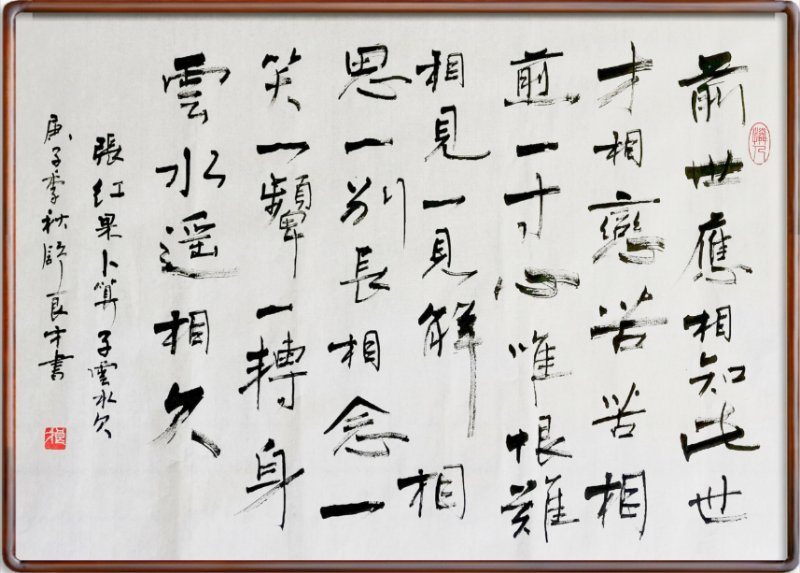 前世應相知此世
才相戀苦苦相
煎一寸心唯恨難
相見一見解相
思一別長相念一
笑一顰一轉身
雲水遥相欠
張红果卜算子雲水欠
庚子季秋良才書